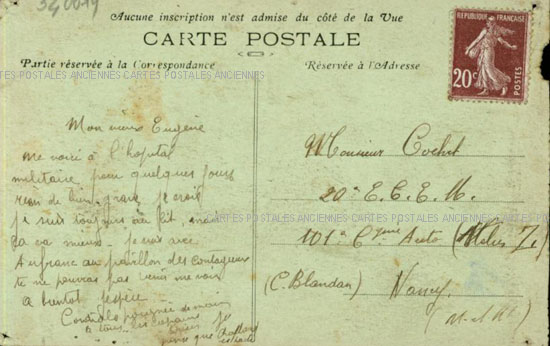 340019
Aucune inscription n'est admise du côté de la Vue
CARTE POSTALE
Partie réservée à la Correspondance
Réservée à l'Adresse
RÉPUBLIQUE FRANÇAISE
20c
POSTES
CARTES POSTALES ANCIENNES CARTES POSTALES ANCIENNES
Mon vieux Eugène
me voici à l'hopital
militaire, pour quelques jours
rien de bien grave je crois
je suis toujours au lit, mais
ça va mieux. je suis avec
Anfranc au pavillon des contagieux
tu ne pourras pas venir me voir
a bientot j'espère
Cordiale poignée de main
a tous les copains
je
pense que
Monsieur Cochet
20e E.C.E.M.
101e Cie Auto (Atelier
CARTES POSTALES ANCIENNES CARTES POSTALES ANCIENNES
(C. Blandan) Nancy
(M. et M.)